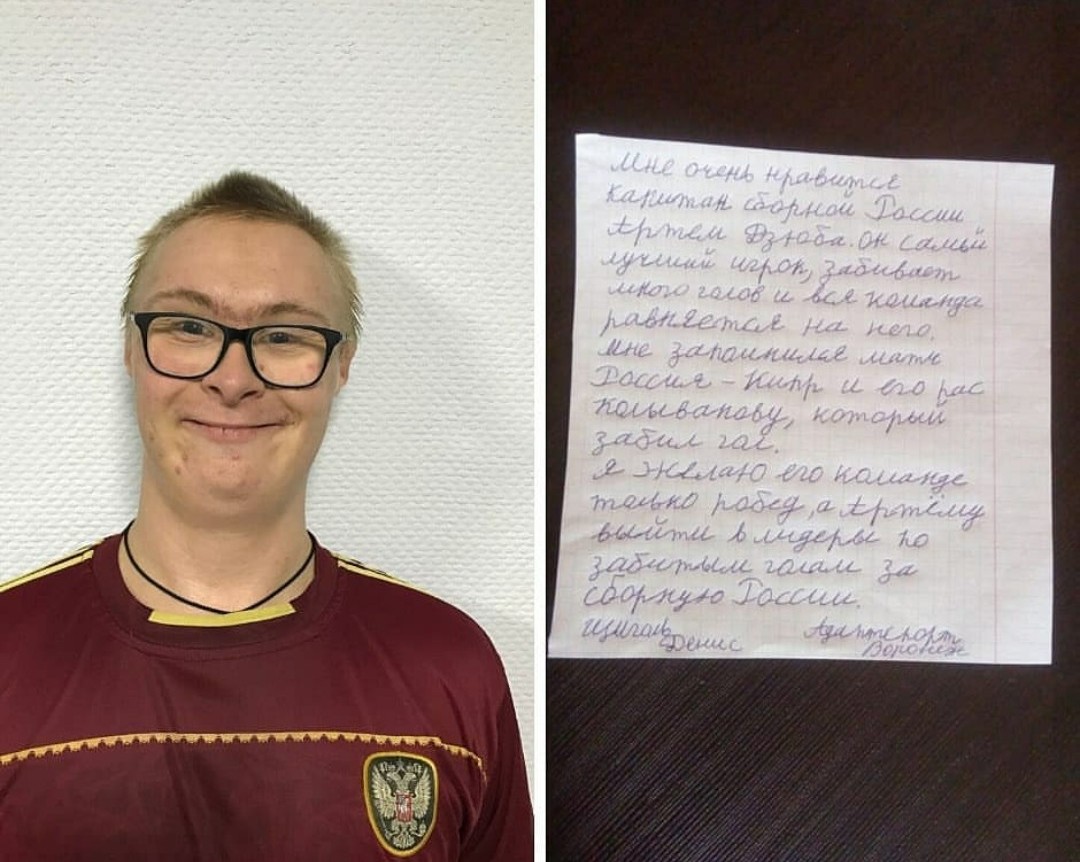 Мне очень нравится
капитан сборной России
Артем Дзюба. Он самый
лучший игрок, забивает
много голов и вся команда
равняется на него.
Мне запомнился матч
Россия - Кипр и его пас
который
забил гол.
Я желаю его команде
только побед, а Артёму
выйти в лидеры по
забитым голам за
сборную России.
Щиголь
Денис
Адаптспорт
Воронеж